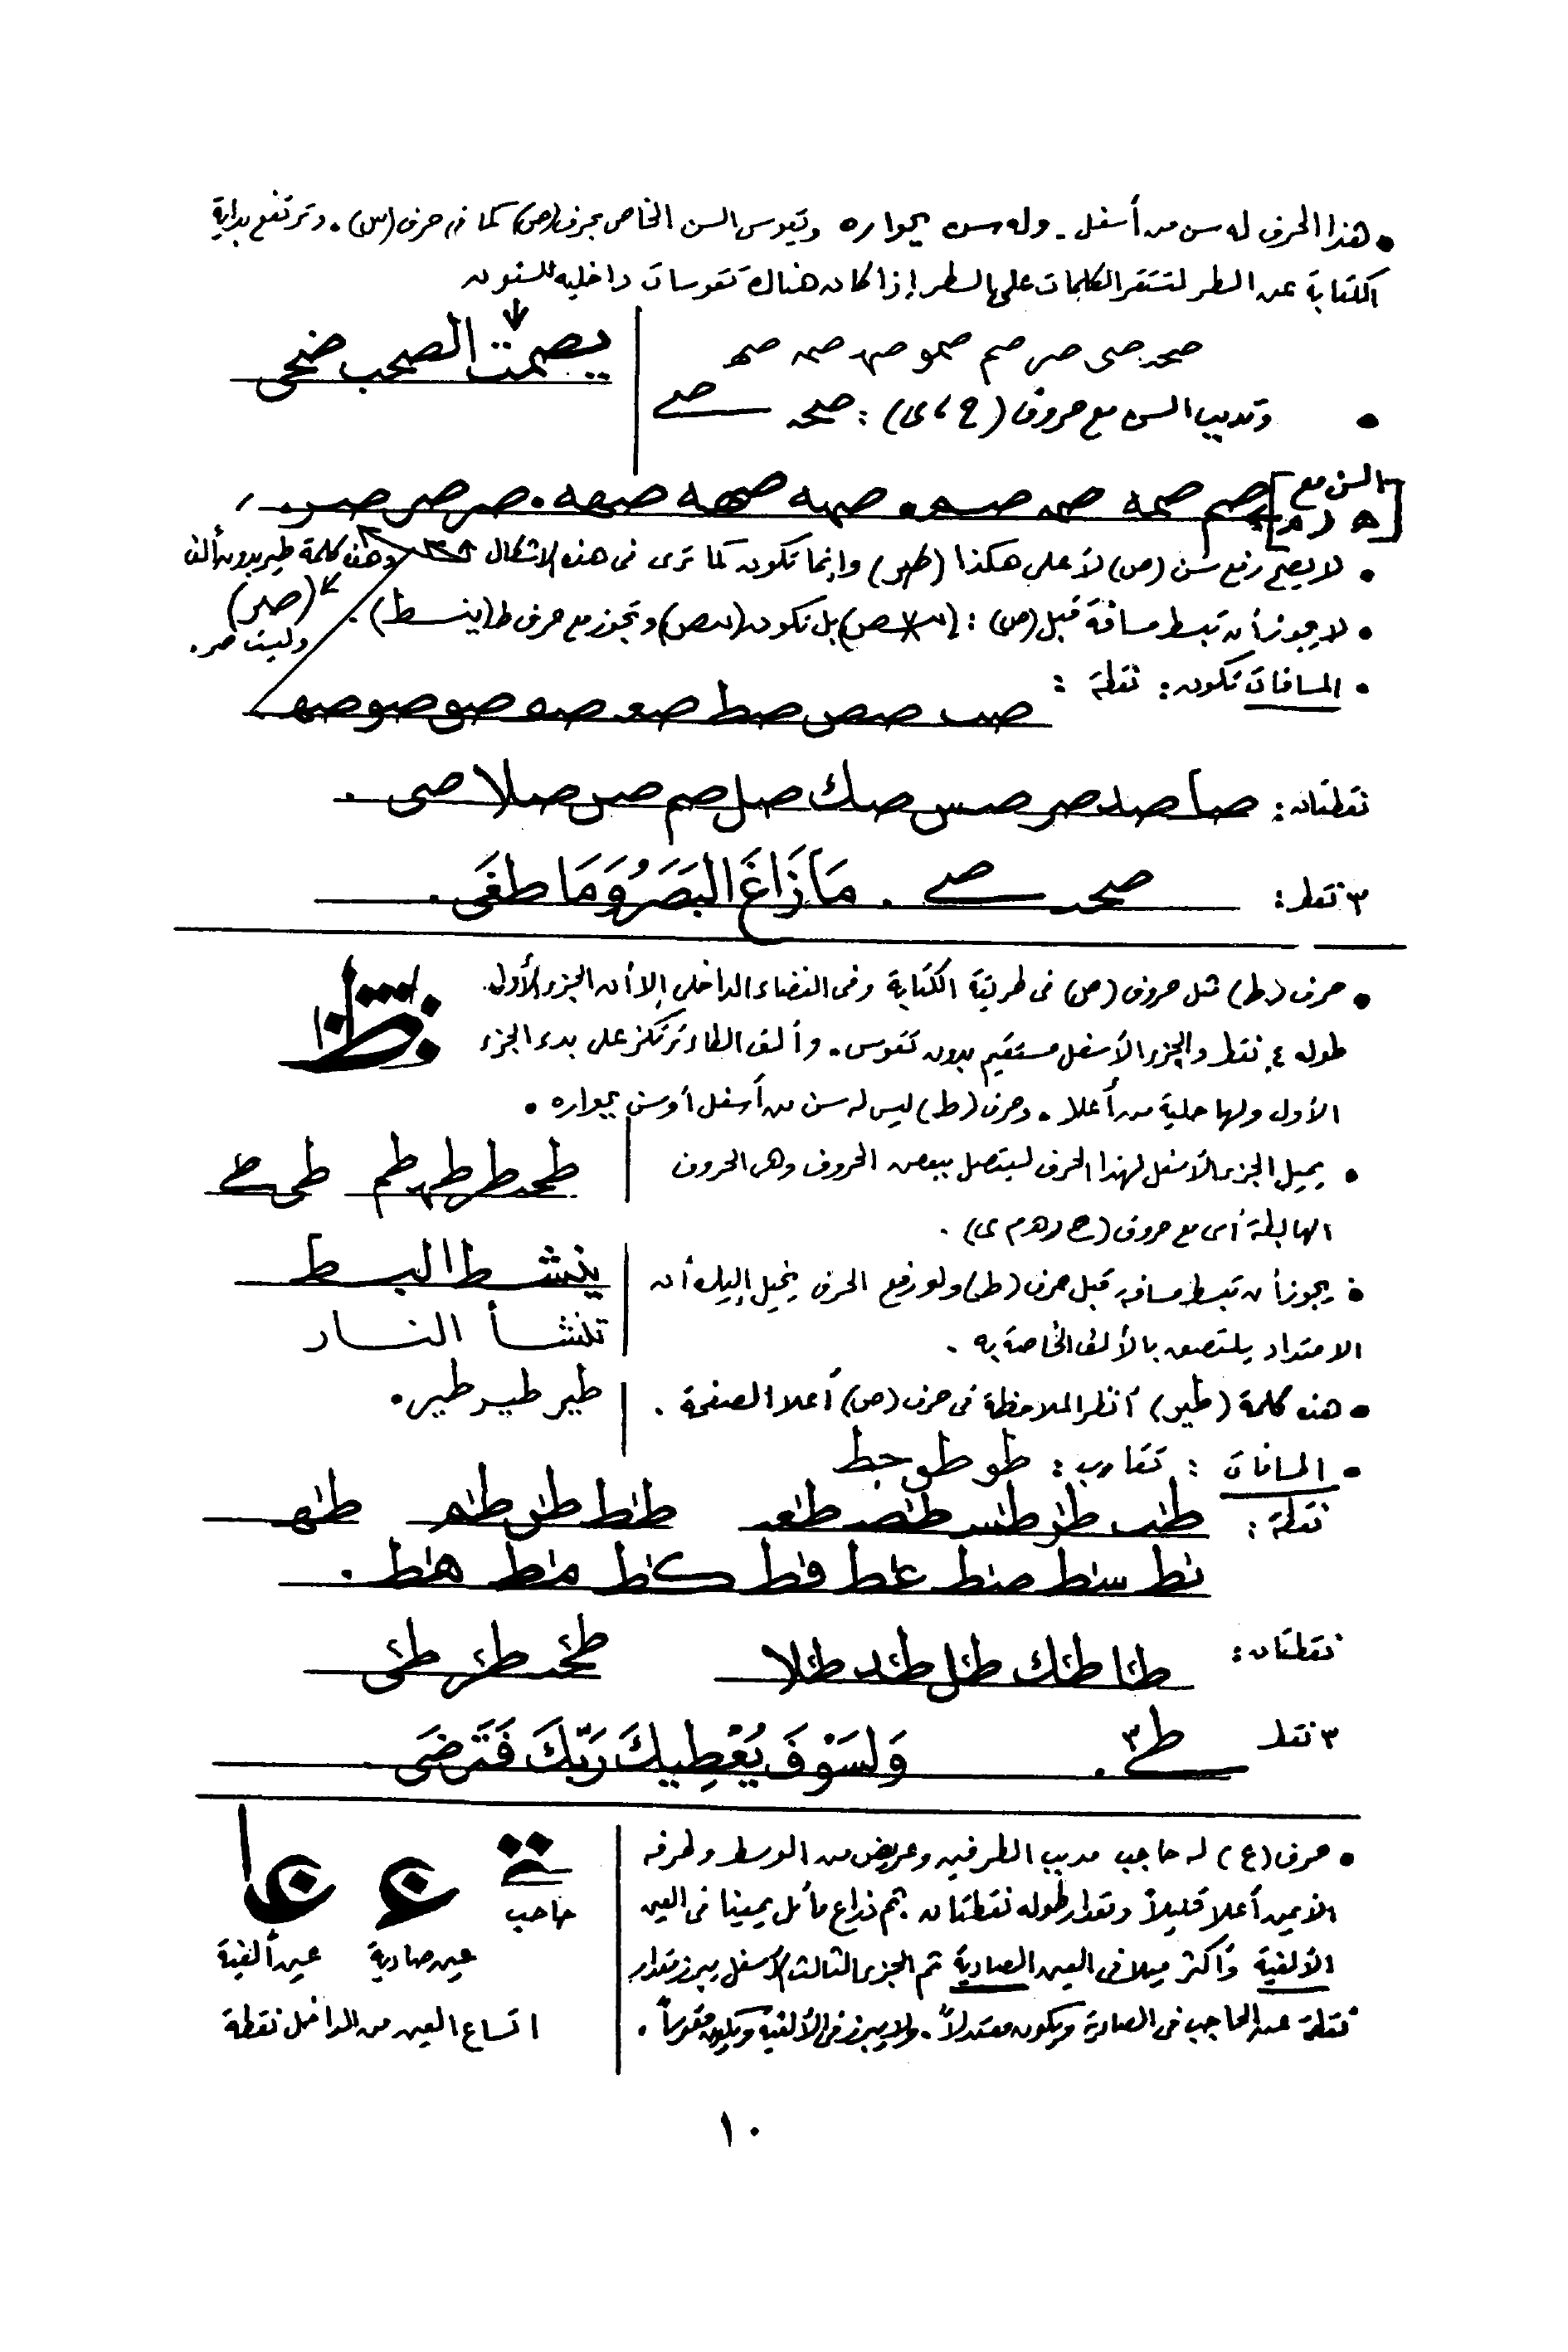 • هذا الحرف له سن من أسفل - وله سن بجواره ويقوس السن الخاص بحرف (ص) كما في حرف (س) . وترتفع بداية
الكتابة عن السطر لتستقر الكلمات على السطر إذا كان هناك تقوسات داخلية للسنون
صحد صى صر صم صمو صهد صمه صمه
يصمت الصحب ضحى
• وتدبب السن مع حروف (ح ، ى) : صحد صے
[السن مع ه ر م] صم صمه صمد . صهه صهه . صر صر صر
• لا يصح رفع سن (ص) لأعلى هكذا (طير) وإنما تكون كما ترى فى هذه الاشكال
وهذه كلمة طير بدون ألف (صلر) وليست صر .
• لا يجوز أن تبسط مسافة قبل (ص) : (سص) بل تكون (سص) وتجوز مع حرف ط (ينسط) .
• المسافات تكون : نقطة :
صب صص صط صعد صه صو صو صهد
نقطتان : صا صد صر صس صك صل صم صن صلا صى .
٣ نقط : صحد صے . مَا زَاغَ البَصَرُ وَمَا طَغَى .
• حرف (ط) مثل حروف (ص) فى طريقة الكتابة وفى الفضاء الداخلى إلا أن الجزء الأول
طوله ٤ نقط والجزء الأسفل مستقيم بدون تقوس . وألف الطاء ترتكز على بدء الجزء
الأول ولها حلية من أعلا . وحرف (ط) ليس له سن من أسفل أو سن بجواره .
• يميل الجزء الأسفل لهذا الحرف ليتصل ببعض الحروف وهى الحروف
الهابطة أى مع حروف (ح ر هـ م ى) .
طحد طر طهد طم طى طے
• يجوز أن تبسط مسافة قبل حرف (ط) ولو رفع الحرف يخيل إليك أن
الامتداد يلتصق بالألف الخاصة به .
ينشط البسط
تنشأ النسار
• هذه كلمة (طير) أنظر الملاحظة فى حرف (ص) أعلا الصفحة .
طير طير طير .
• المسافات : تقارب : طو طو حط
نقطة : طب طو طسد طصد طعد طط طو طم طهد
نط سط صط عط فط كط مط هط .
نقطتان : طا طك طل طد طلا طحد طر طى
٣ نقط طے ٣ . وَلَسَوْفَ يُعْطِيكَ رَبُّكَ فَتَرْضَى .
• حرف (ع) له حاجب مدبب الطرفين وعريض من الوسط وطرفه
الأيمن أعلا قليلاً ومقدار طوله نقطتان . ثم ذراع مائل يمينا فى العين
الألفية وأكثر ميلا فى العين الصادية ثم الجزء الثالث الأسفل يبرز مقدار
نقطة عن الحاجب فى الصادية ويكون معتدلاً . ولا يبرز فى الألفية ويكون مقوساً .
حاجب
عين صادية
عين ألفية
اتساع العين من الداخل نقطة
١٠